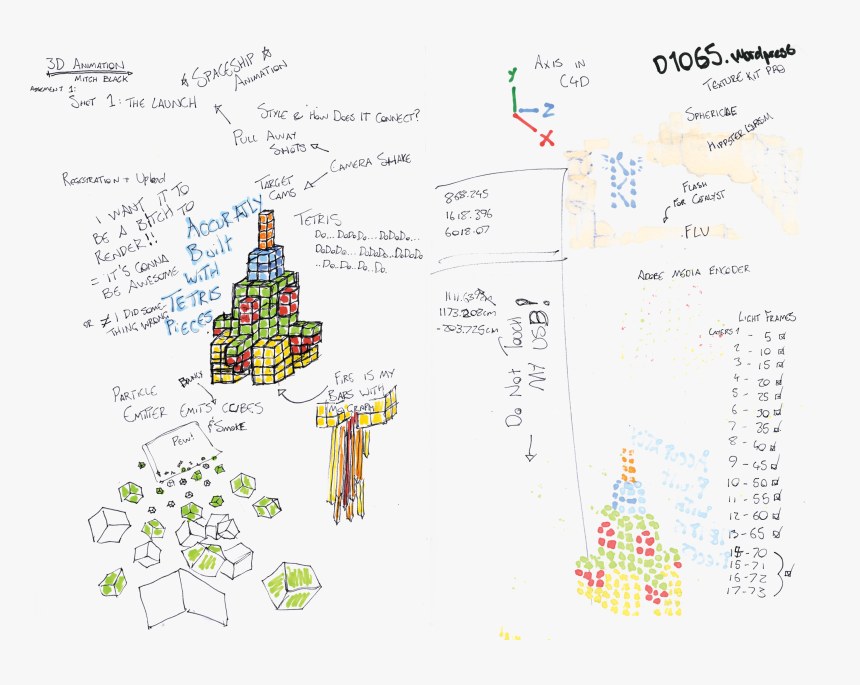 3D ANIMATION
MITCH BLACK
SHOT 1: THE LAUNCH
SPACESHIP
ANIMATION
STYLE & HOW DOES IT CONNECT?
PULL AWAY
SHOTS
CAMERA SHAKE
TARGET
CAMS
REGISTRATION + Upload
I WANT IT TO
BE A BITCH TO
RENDER!!
= IT'S GONNA
BE AWESOME
OR ≠ I DID SOME-
THING WRONG
ACCURATLY
Built
WITH
TETRIS
PIECES
TETRIS
Do... DoDoDo... DoDoDo...
DoDoDo... DoDoDo DoDoDo
..Do..Do..Do..Do.
PARTICLE
EMITTER EMITS CUBES
& SMOKE
Pew!
FIRE IS MY
BARS WITH
MOGRAPH
Y
Z
X
AXIS IN
C4D
D1065.Wordpress
TEXTURE KIT PRO
868.245
1618.396
6018.07
1173.208cm
-703.725cm
Do Not Touch
MY USB!
FLASH
FOR CATALYST
FLU
ADOBE MEDIA ENCODER
LIGHT FRAMES
LAYERS 1 - 5
2 - 10
3 - 15
4 - 20
5 - 25
6 - 30
7 - 35
8 - 40
9 - 45
10 - 50
11 - 55
12 - 60
13 - 65
14 - 70
15 - 71
16 - 72
17 - 73